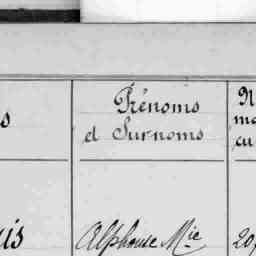 s
Prénoms
et Surnoms
N
ma
cu
uis
Alphonse Mie
20